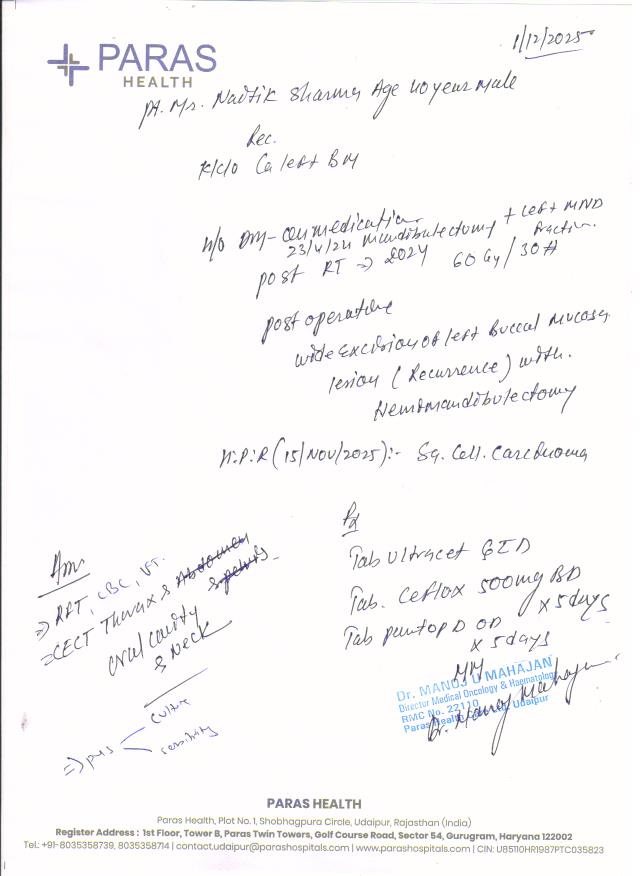 PARAS
HEALTH
1/12/2025
pt. Mr. Naitik Sharma Age 40 year Male
Rec.
K/C/O Ca left BM
H/O DM - on medication
23/4/24 Mandibulectomy + left MND
post RT → 2024 60 Gy / 30 #
post operative
wide Excision of left Buccal Mucosa
lesion (Recurrence) with
Hemimandibulectomy
H.P.R (15/NOV/2025):- Sq. Cell. Carcinoma
Adv
⇒ RFT, CBC, LFT.
⇒ CECT Thorax & Abdomen
& pelvis
oral cavity
& Neck
⇒ pus
culture
sensitivity
Rx
Tab Ultracet
Tab. Ceflox 500mg BD
x 5 days
Tab pantop D OD
x 5 days
Dr. MANOJ U MAHAJAN
Director Medical Oncology & Haematology
RMC No. 22110
Paras Health, Udaipur
Dr. Manoj Mahajan
PARAS HEALTH
Paras Health, Plot No. 1, Shobhagpura Circle, Udaipur, Rajasthan (India)
Register Address : 1st Floor, Tower B, Paras Twin Towers, Golf Course Road, Sector 54, Gurugram, Haryana 122002
Tel.: +91-8035358739, 8035358714 | contact.udaipur@parashospitals.com | www.parashospitals.com | CIN: U85110HR1987PTC035823